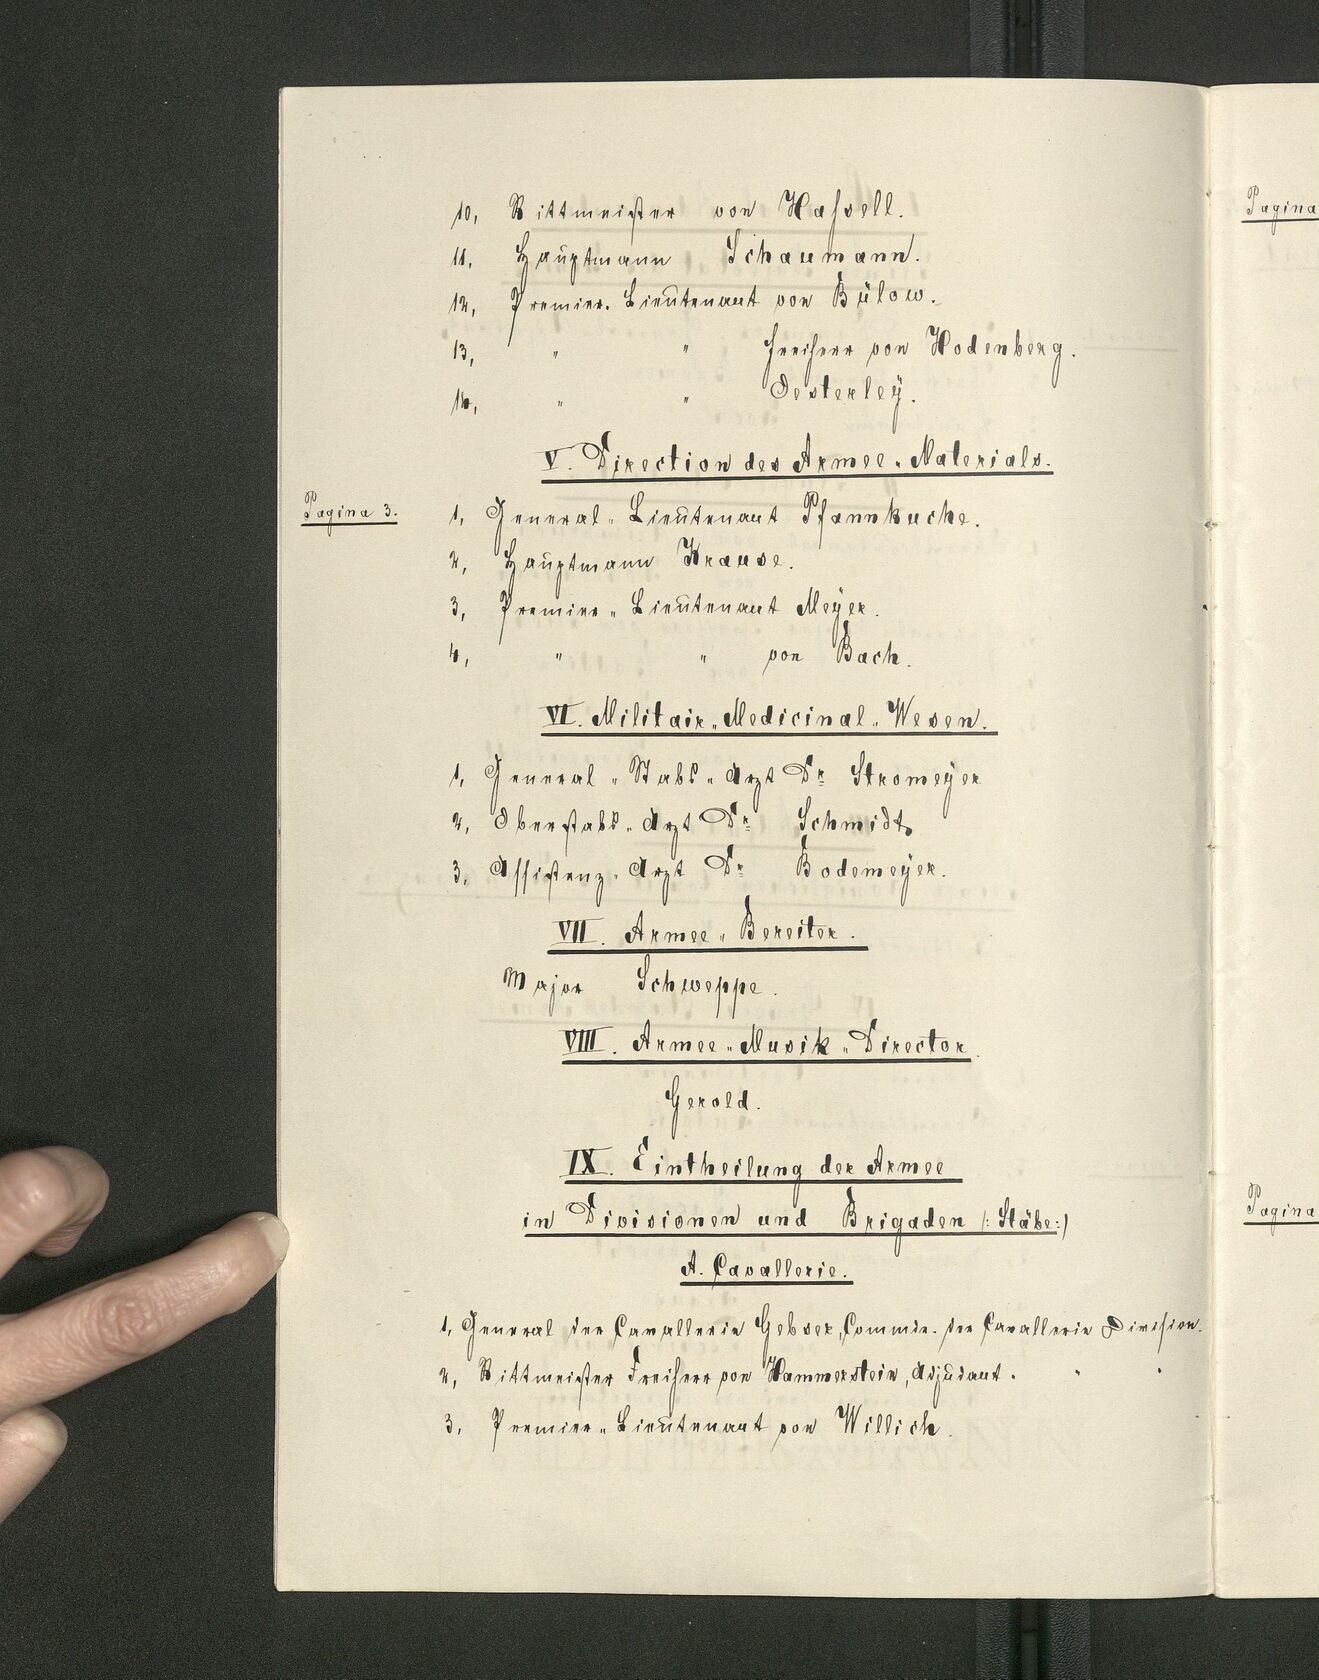 10, Rittmeister von Hassell.
11, Hauptmann Schaumann.
12, Premier-Lieutenant von Bülow.
13, " " Freiherr von Hodenberg.
14, " " Oesterleÿ.
V. Direction des Armee-Materials.
Pagina 3.
1, General-Lieutenant Pfannkuche.
2, Hauptmann Krause.
3, Premier-Lieutenant Meÿer.
4, " " von Bach.
VI. Militair-Medicinal-Wesen.
1, General-Stabs-Arzt Dr Stromeÿer
2, Oberstabs-Arzt Dr Schmidt,
3, Assistenz-Arzt Dr Bodemeÿer.
VII. Armee-Bereiter.
Major Schweppe.
VIII. Armee-Musik-Director.
Gerold.
IX. Eintheilung der Armee
in Divisionen und Brigaden (: Stäbe:)
A. Cavallerie.
1, General der Cavallerie Gebser, Commdr. der Cavallerie Division.
2, Rittmeister Freiherr von Hammerstein, Adjudant. " "
3, Premier-Lieutenant von Willich.
Pagina
Pagina